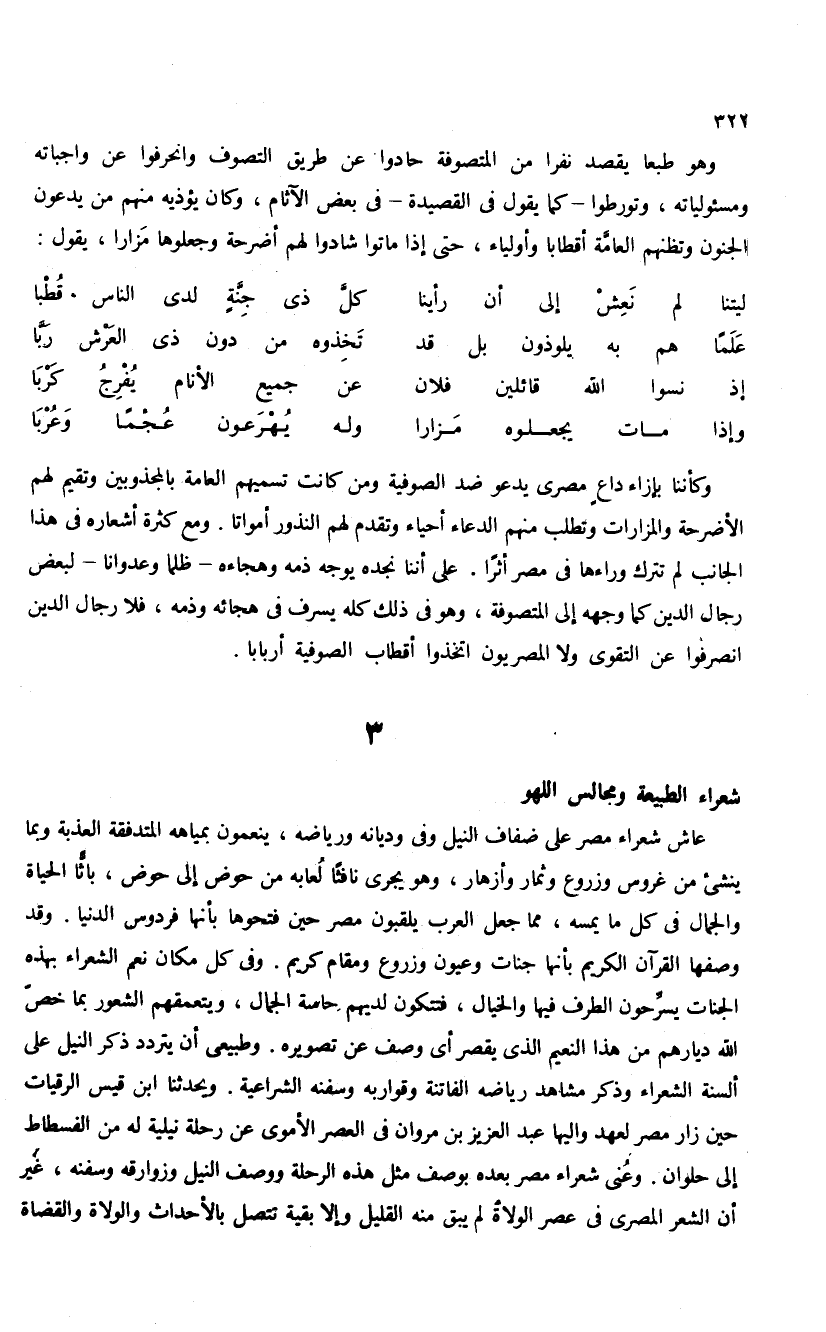 ٣٢٢
وهو طبعا يقصد نفرا من المتصوفة حادوا عن طريق التصوف وانحرفوا عن واجباته
ومسئولياته ، وتورطوا – كما يقول فى القصيدة – فى بعض الآثام ، وكان يؤذيه منهم من يدعون
الجنون وتظنهم العامَّة أقطابا وأولياء ، حتى إذا ماتوا شادوا لهم أضرحة وجعلوها مَزارا ، يقول :
ليتنا لم نَعِشْ إلى أن رأينا كلَّ ذى جِنَّةٍ لدى الناس قُطْبا
عَلَمًا هم به يلوذون بل قد تَخِذوه من دون ذى العَرْش رَبَّا
إذ نسوا الله قائلين فلان عن جميع الأنام يُفْرِجُ كَرْبَا
وإذا مات يجعلوه مَزارا وله يُهْرَعون عُجْمًا وَعُرْبَا
وكأننا بإزاء داعٍ مصرى يدعو ضد الصوفية ومن كانت تسميهم العامة بالمجذوبين وتقيم لهم
الأضرحة والمزارات وتطلب منهم الدعاء أحياء وتقدم لهم النذور أمواتا . ومع كثرة أشعاره فى هذا
الجانب لم تترك وراءها فى مصر أثرًا . على أننا نجده يوجه ذمه وهجاءه – ظلما وعدوانا – لبعض
رجال الدين كما وجهه إلى المتصوفة ، وهو فى ذلك كله يسرف فى هجائه وذمه ، فلا رجال الدين
انصرفوا عن التقوى ولا المصريون اتخذوا أقطاب الصوفية أربابا .
٣
شعراء الطبيعة ومجالس اللهو
عاش شعراء مصر على ضفاف النيل وفى وديانه ورياضه ، ينعمون بمياهه المتدفقة العذبة وبما
ينشئ من غروس وزروع وثمار وأزهار ، وهو يجرى نافثًا لُعابه من حوض إلى حوض ، باثًّا الحياة
والجمال فى كل ما يمسه ، مما جعل العرب يلقبون مصر حين فتحوها بأنها فردوس الدنيا . وقد
وصفها القرآن الكريم بأنها جنات وعيون وزروع ومقام كريم . وفى كل مكان نعم الشعراء بهذه
الجنات يسرِّحون الطرف فيها والخيال ، فتتكون لديهم حاسة الجمال ، ويتعمقهم الشعور بما خصّ
الله ديارهم من هذا النعيم الذى يقصر أى وصف عن تصويره . وطبيعى أن يتردد ذكر النيل على
ألسنة الشعراء وذكر مشاهد رياضه الفاتنة وقواربه وسفنه الشراعية . ويحدثنا ابن قيس الرقيات
حين زار مصر لعهد واليها عبد العزيز بن مروان فى العصر الأموى عن رحلة نيلية له من الفسطاط
إلى حلوان . وعُنى شعراء مصر بعده بوصف مثل هذه الرحلة ووصف النيل وزوارقه وسفنه ، غَيْر
أن الشعر المصرى فى عصر الولاة لم يبق منه القليل وإلا بقية تتصل بالأحداث والولاة والقضاة